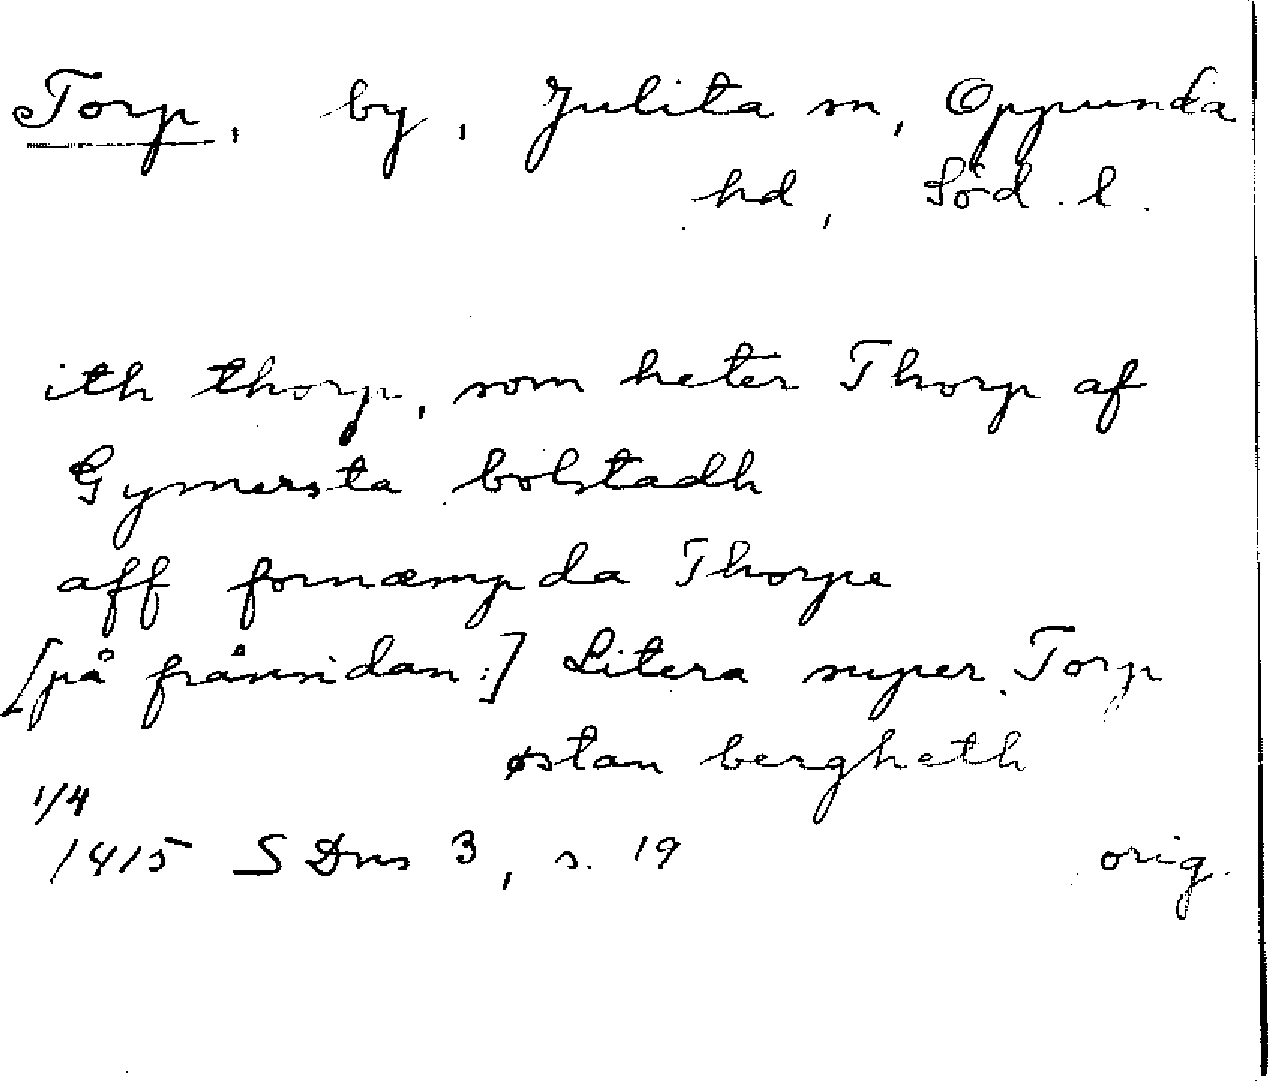 Torp, by, Julita sn, Oppunda
hd, Söd. l.
ith thorp, som heter Thorp af
Gymersta bolstadh
aff fornæmpda Thorpe
[på frånsidan:] Litera super Torp
østan bergheth
1/4
1415 SDns 3, s. 19 orig.